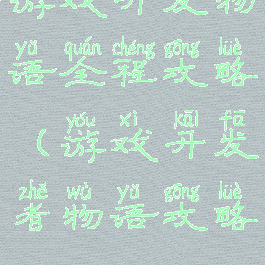 游戏开发物
yǔ quán chéng gōng lüè
语全程攻略
yóu xì kāi fā
（游戏开发
zhě wù yǔ gōng lüè
者物语攻略